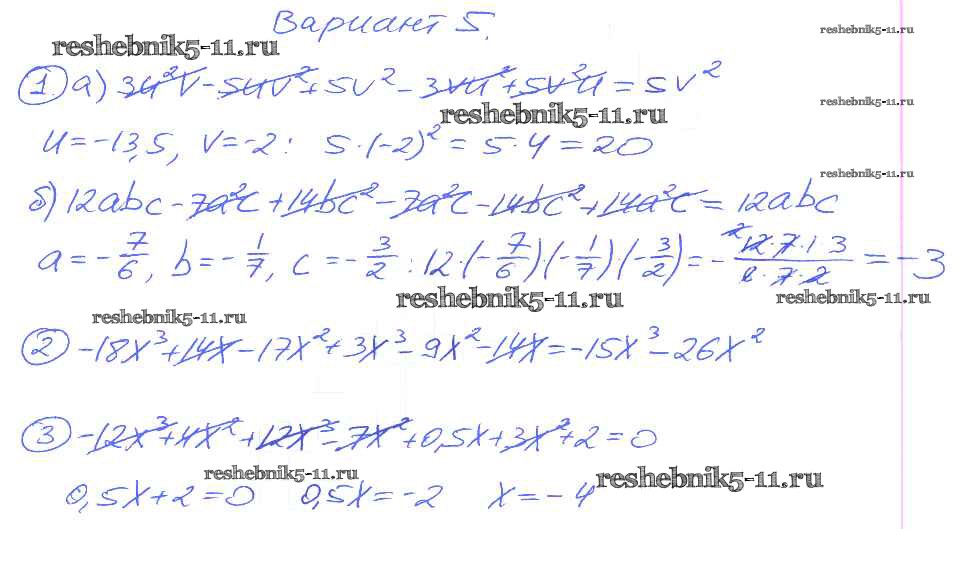 Вариант 5.
reshebnik5-11.ru
reshebnik5-11.ru
① а) 3u²v - 5uv² + 5v² - 3vu² + 5v²u = 5v²
reshebnik5-11.ru
reshebnik5-11.ru
u = -13,5, v = -2 : 5 · (-2)² = 5 · 4 = 20
reshebnik5-11.ru
б) 12abc - 7a²c + 14bc² - 7a²c - 14bc² + 14a²c = 12abc
a = -7/6, b = -1/7, c = -3/2 : 12 · (-7/6)(-1/7)(-3/2) = - 12·7·1·3/6·7·2 = -3
reshebnik5-11.ru
reshebnik5-11.ru
reshebnik5-11.ru
② -18x³ + 14x - 17x² + 3x³ - 9x² - 14x = -15x³ - 26x²
③ -12x³ + 4x² + 12x³ - 7x² + 0,5x + 3x² + 2 = 0
reshebnik5-11.ru
reshebnik5-11.ru
0,5x + 2 = 0 0,5x = -2 x = -4